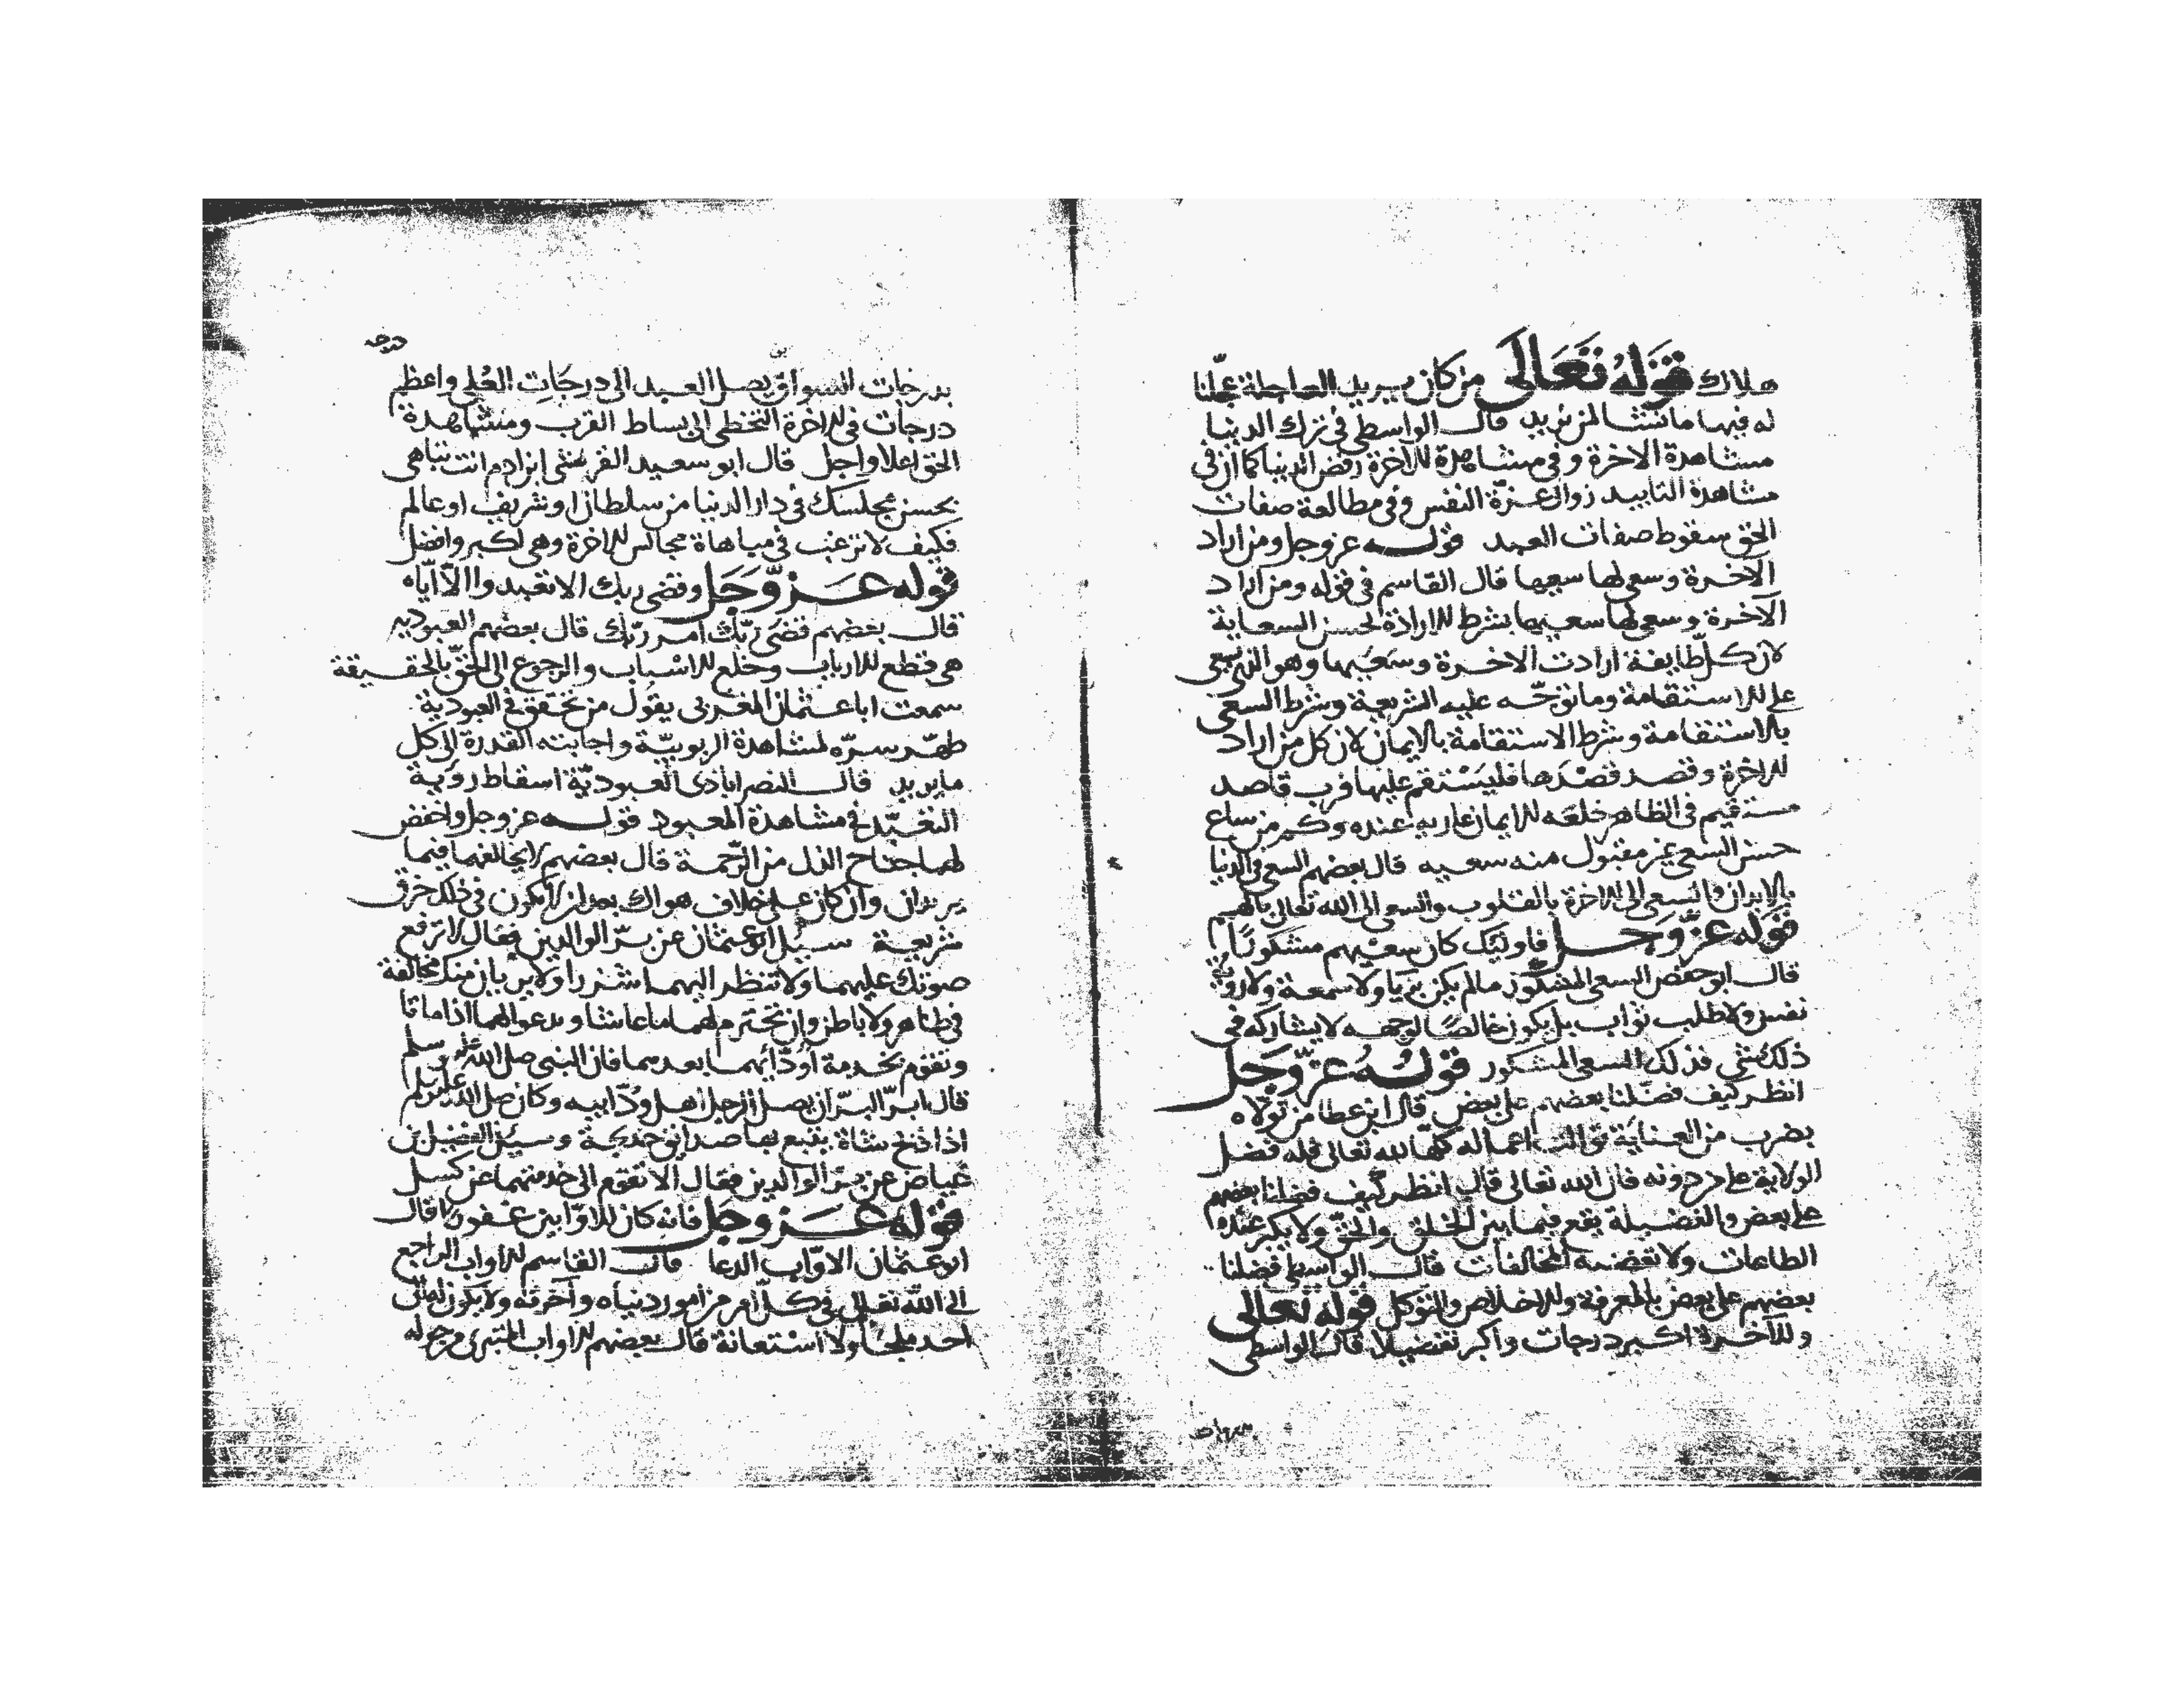 هلاك قوله تعالى من كان يريد العاجلة عجلنا
له فيها ما نشا لمن نريد قال الواسطي في ترك الدنيا
مشاهدة الاخرة وفي مشاهدة الاخرة رفض الدنيا كما ان في
مشاهدة التاييد زوال عزة النفس وفي مطالعة صفات
الحق سقوط صفات العبد قوله عز وجل ومن اراد
الآخرة وسعى لها سعيها قال القاسم في قوله ومن اراد
الآخرة وسعى لها سعيها بشرط الارادة لحسن السعاية
لان كل طايفة ارادت الاخرة وسعيها وهو الذي سعى
على الاستقامة وما توجبه عليه الشريعة وشرط السعي
بالاستقامة وشرط الاستقامة بالايمان لان كل من اراد
الاخرة وقصد قصدها فليستقم عليها فرب قاصد
مستقيم في الظاهر خلعه الايمان عارية عنده وكم من ساع
حسن السعي غير مقبول منه سعيه قال بعضهم السعي في الدنيا
بالابدان والسعي الى الاخرة بالقلوب والسعي الى الله تعالى بالهمم
قوله عز وجل فاوليك كان سعيهم مشكورًا
قال ابو حفص السعي المشكور ما لم يكن بريا ولا سمعة ولا روية
نفس ولا طلب ثواب بل يكون خالصًا لوجهه لا يشاركه في
ذلك شي فذلك السعي المشكور قوله عز وجل
انظر كيف فضلنا بعضهم على بعض قال ابن عطا من تولاه
بضرب من العناية تولت اعماله كلها لله تعالى فله فضل
الولاية على من دونه فان الله تعالى قال انظر كيف فضلنا بعضهم
على بعض والفضيلة يقع فيما بين الخلق والحق ولا يكبر عنده
الطاعات ولا تغضبه المخالفات قال الواسطي فضلنا
بعضهم على بعض بالمعرفة والاخلاص والتوكل قوله تعالى
وللآخرة اكبر درجات واكبر تفضيلا قال الواسطي
بدرجات
درجه
بدرجات السوابق يصل العبد الى درجات العلى واعظم
درجات في الاخرة التخطي الى بساط القرب ومشاهدة
الحق اعلا واجل قال ابو سعيد القرشي ابن ادم انت تباهي
بحسن مجلسك في دار الدنيا من سلطان او شريف او عالم
فكيف لا ترغب في مباهاة مجالس الاخرة وهي اكبر وافضل
قوله عز وجل وقضى ربك الا تعبدوا الا اياه
قال بعضهم قضى ربك امر ربك قال بعضهم العبودية
هي قطع الارباب وخلع الاسباب والرجوع الى الحق بالحقيقة
سمعت ابا عثمان المغربي يقول من تحقق في العبودية
طهر سره لمشاهدة الربوبية واجابته القدرة الى كل
ما يريد قال النصراباذي العبودية اسقاط روية
التعبد في مشاهدة المعبود قوله عز وجل واخفض
لهما جناح الذل من الرحمة قال بعضهم لا يخالفهما فيما
يريدان وان كان على خلاف هواك بعد ان لا يكون في ذلك خرق
شريعة سيل ابو عثمان عن بر الوالدين فقال لا ترفع
صوتك عليهما ولا تنظر اليهما شزرا ولا يريان منك مخالفة
في ظاهر ولا باطن وان تحترم لهما ما عاشا وتدعو لهما اذا ماتا
وتقوم بخدمة اودّائهما بعدهما فان النبي صلى الله عليه وسلم
قال ابر البر ان يصل الرجل اهل ود ابيه وكان صلى الله عليه وسلم
اذا ذبح شاة يتتبع بها صدايق خديجة وسيل الفضيل بن
عياض عن بر الوالدين فقال الا تقوم الى خدمتهما عن كسل
قوله عز وجل فانه كان للاوابين غفورا قال
ابو عثمان الاواب الدعا قال القاسم الاواب الراجع
الى الله تعالى في كل امر من امور دنياه وآخرته ولا يكون له الى
احد ملجأ ولا استعانة قال بعضهم الاواب المتبري من حوله